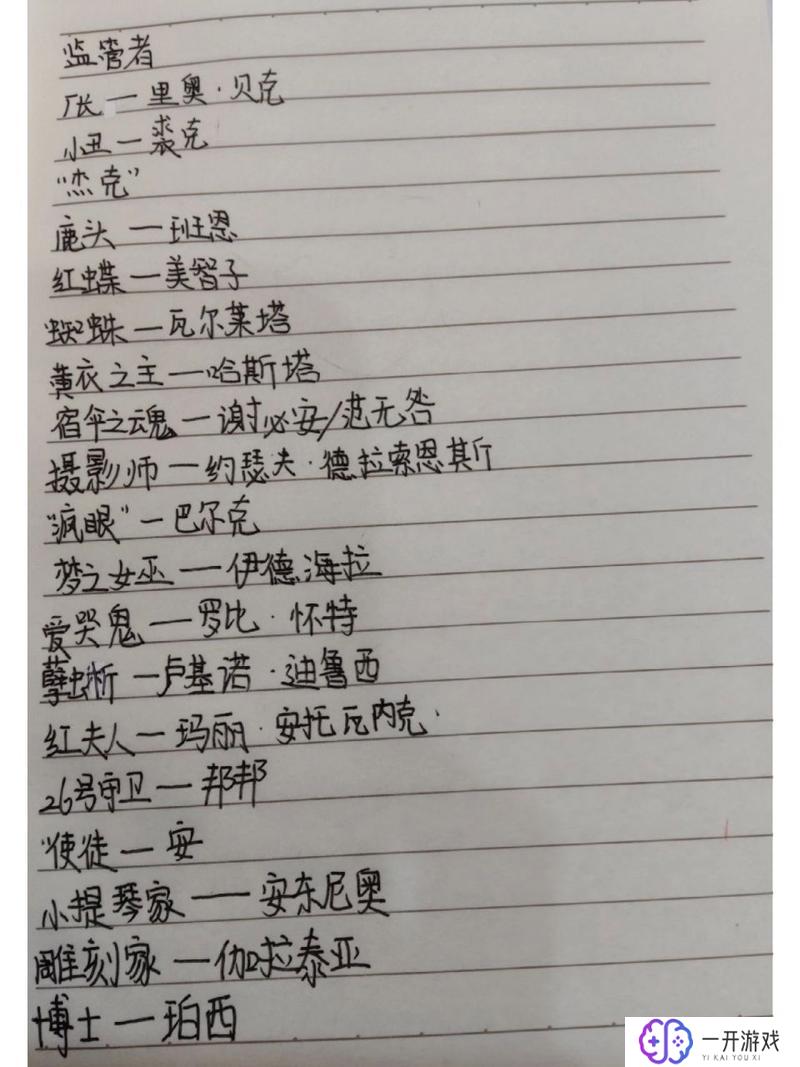 监管者
厂长一里奥·贝克
小丑一裘克
"杰克"
鹿头一班恩
红蝶一美智子
蜘蛛一瓦尔莱塔
黄衣之主一哈斯塔
宿伞之魂一谢必安/范无咎
摄影师一约瑟夫·德拉索恩斯
"疯眼"一巴尔克
梦之女巫一伊德海拉
爱哭鬼一罗比·怀特
孽蜥一卢基诺·迪鲁西
红夫人一玛丽·安托瓦内克.
26号守卫一邦邦
"使徒一安
小提琴家一安东尼奥
雕刻家一伽拉泰亚
博士一珀西
一开游戏
YI KAI YOU XI